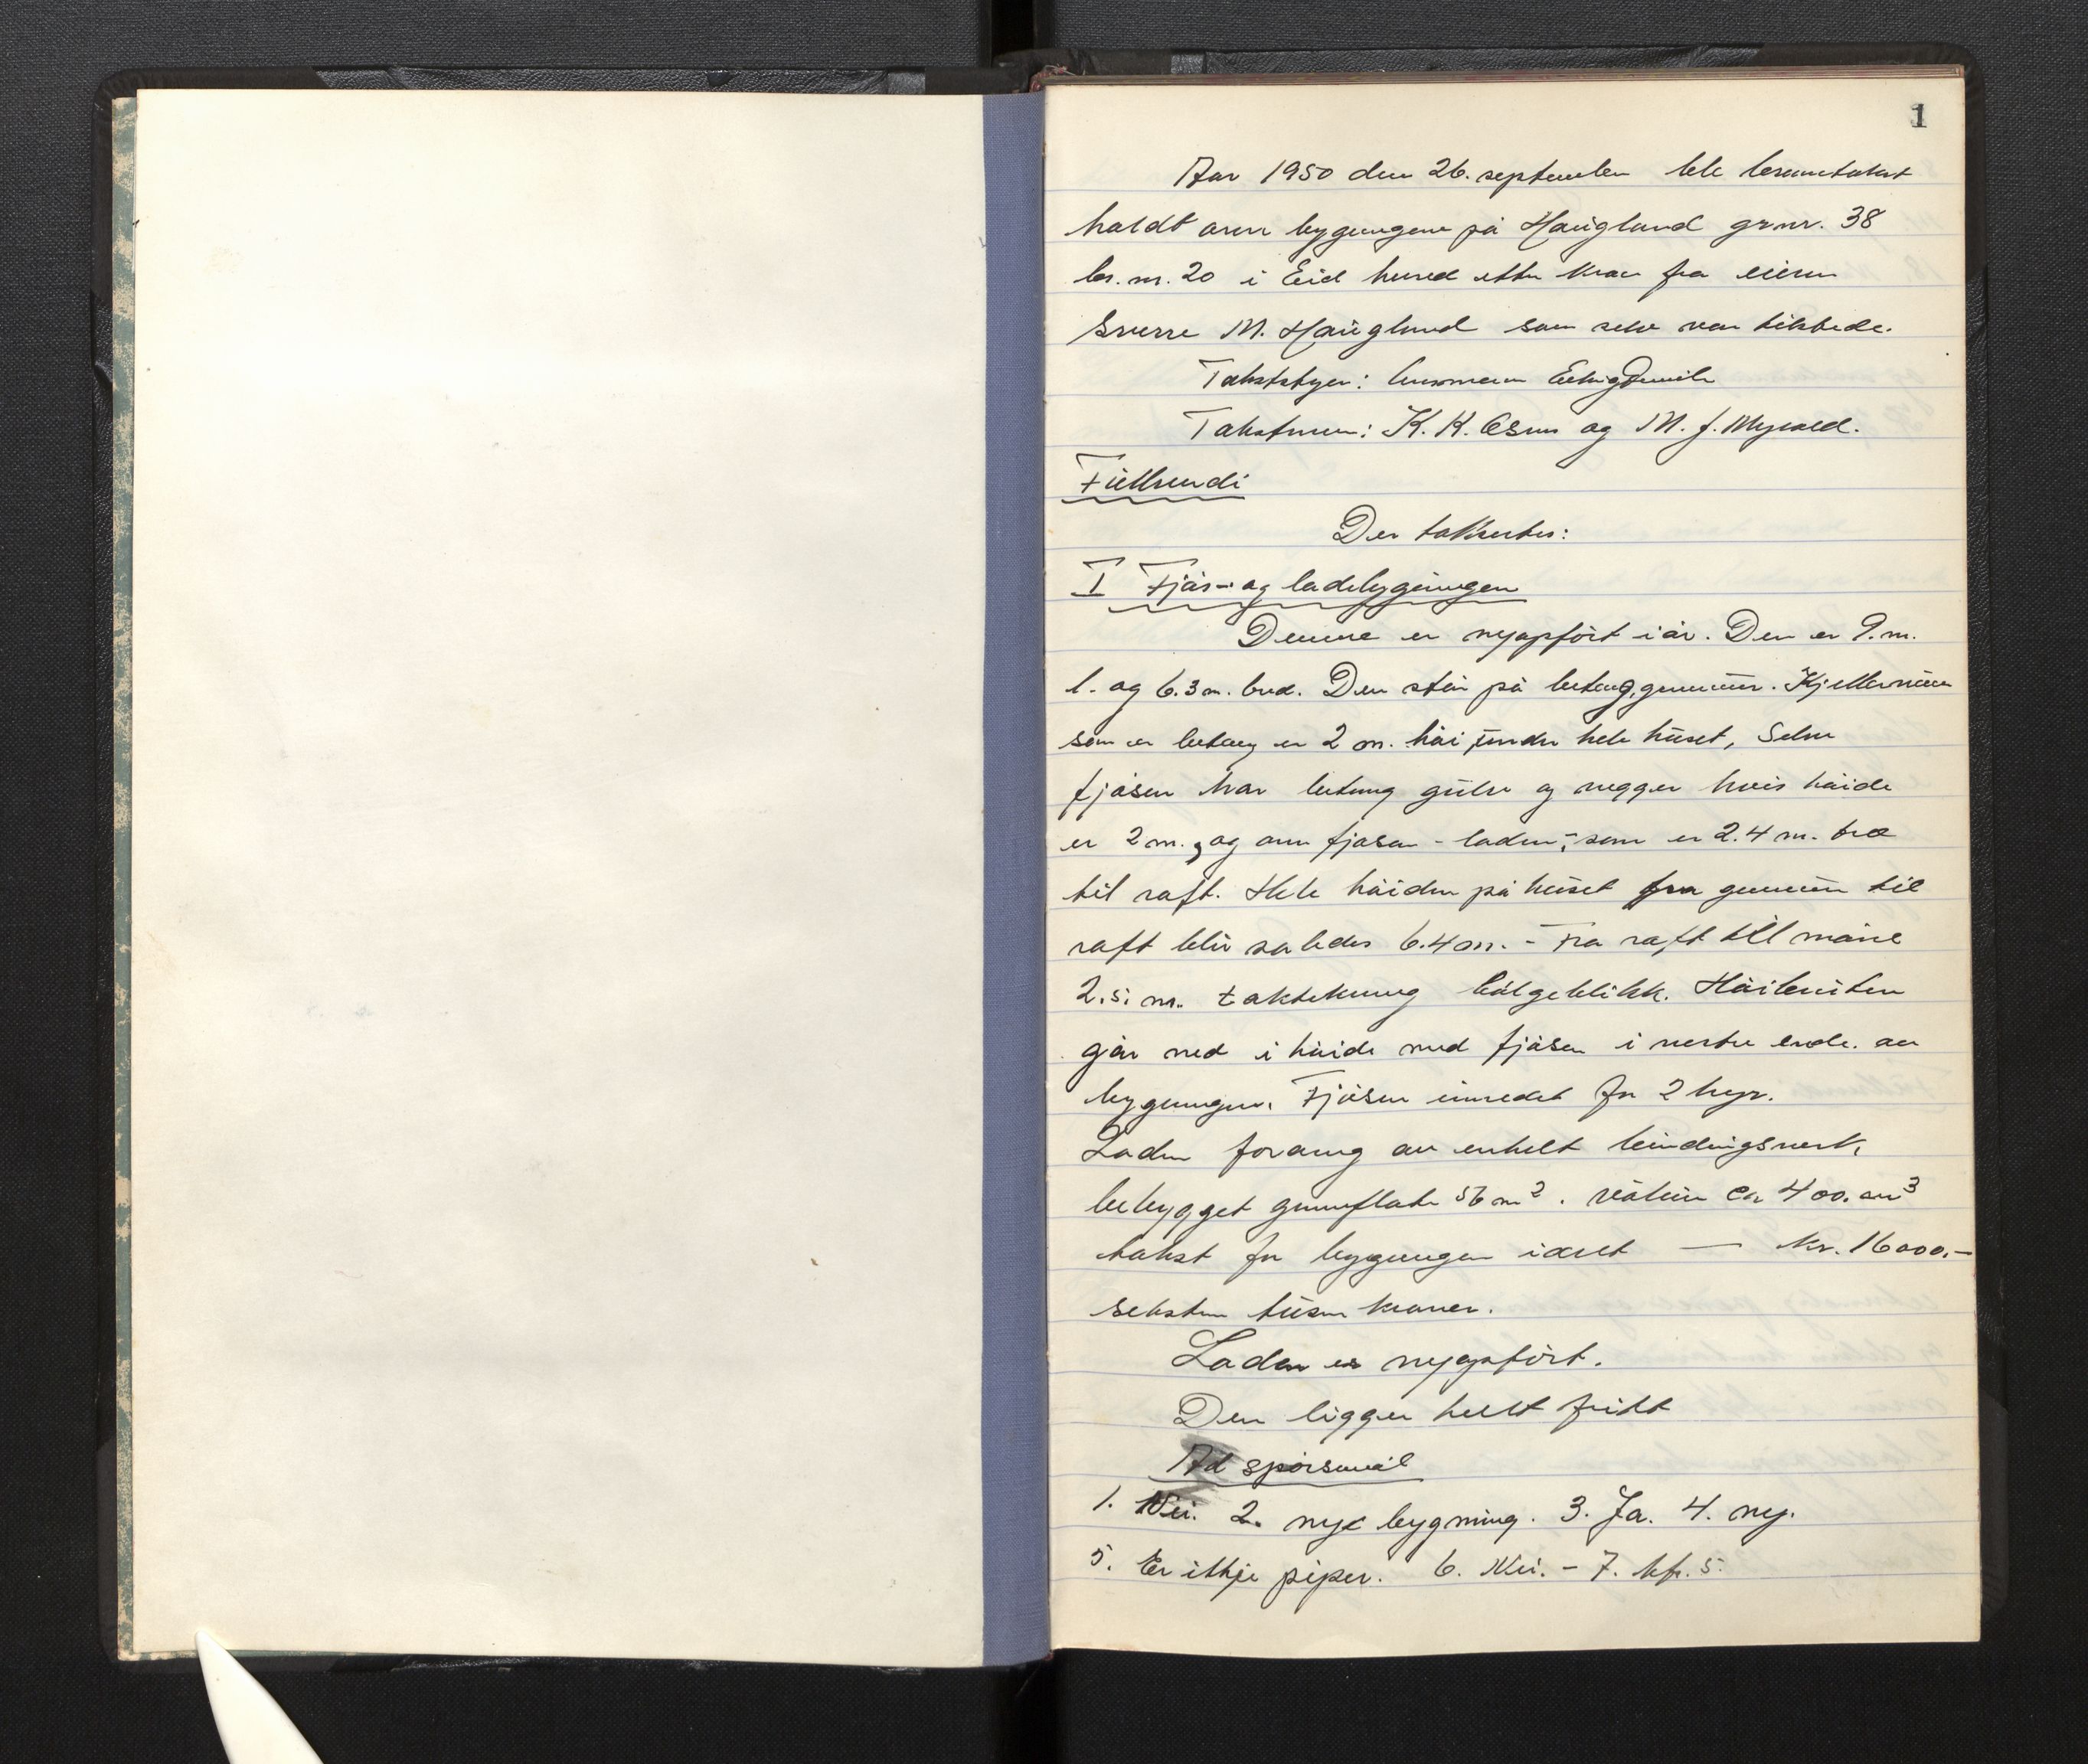 1
Aar 1950 den 26. september ble branntakst
holdt over bygningene på Haugland grnr. 38
br. nr. 20 i Eid herred etter krav fra eieren
Sverre M. Haugland som selv var tilstede.
Takststyrer: lensmann
Takstmenn: K. K. og M. J. Myrold.
Følbrendi
Der takseertes:
I Fjøs- og ladebygningen
Denne er nyopført i år. Den er 9. m.
l. og 6.3 m. bred. Den står på betong, grunnmur. Kjellermuren
som er betong er 2 m. høi under hele huset, Selve
fjøsen har betong gulv og vegger hvis høide
er 2 m., og over fjøsen - laden, som er 2.4 m. fra
til raft. Hele høiden på huset fra grunnmur til
raft blir saledes 6.4 m. - Fra raft till møne
2.5. m. taktekning bølgeblikk.
går ned i høide med fjøsen i vestre ende. av
bygningen. Fjøsen innredet for 2 kyr.
Laden forøvrig av enkelt bindingsverk,
bebygget grunnflate 56 m². volum ca 400. m³
takst for bygningen i alt — kr. 16000.-
seksten tusen kroner.
Laden er nyopført.
Den ligger helt fritt
Ad spørsmål
1. Nei. 2. nye bygning. 3. Ja. 4. ny.
5. Er ikkje piper. 6. Nei. - 7. kfr. 5.